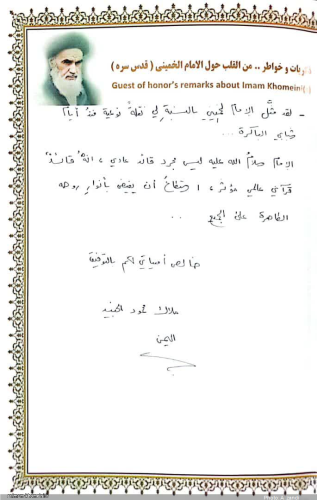 ذكريات و خواطر .. من القلب حول الامام الخميني ( قدس سره )
Guest of honor's remarks about Imam Khomeini(
- لقد مثَّل الإمام الخميني بالنسبة لي نقلة نوعية منذ أيام
صباي الباكرة ...
الإمام سلام الله عليه ليس مجرد قائد عادي ، انهُ قائدٌ
قرآني عالمي مؤثر ، استطاع أن يفيض بأنوار روحه
الطاهرة على الجميع ..
خالص أمنياتي لكم بالتوفيق
محمود الجنيد
اليمن